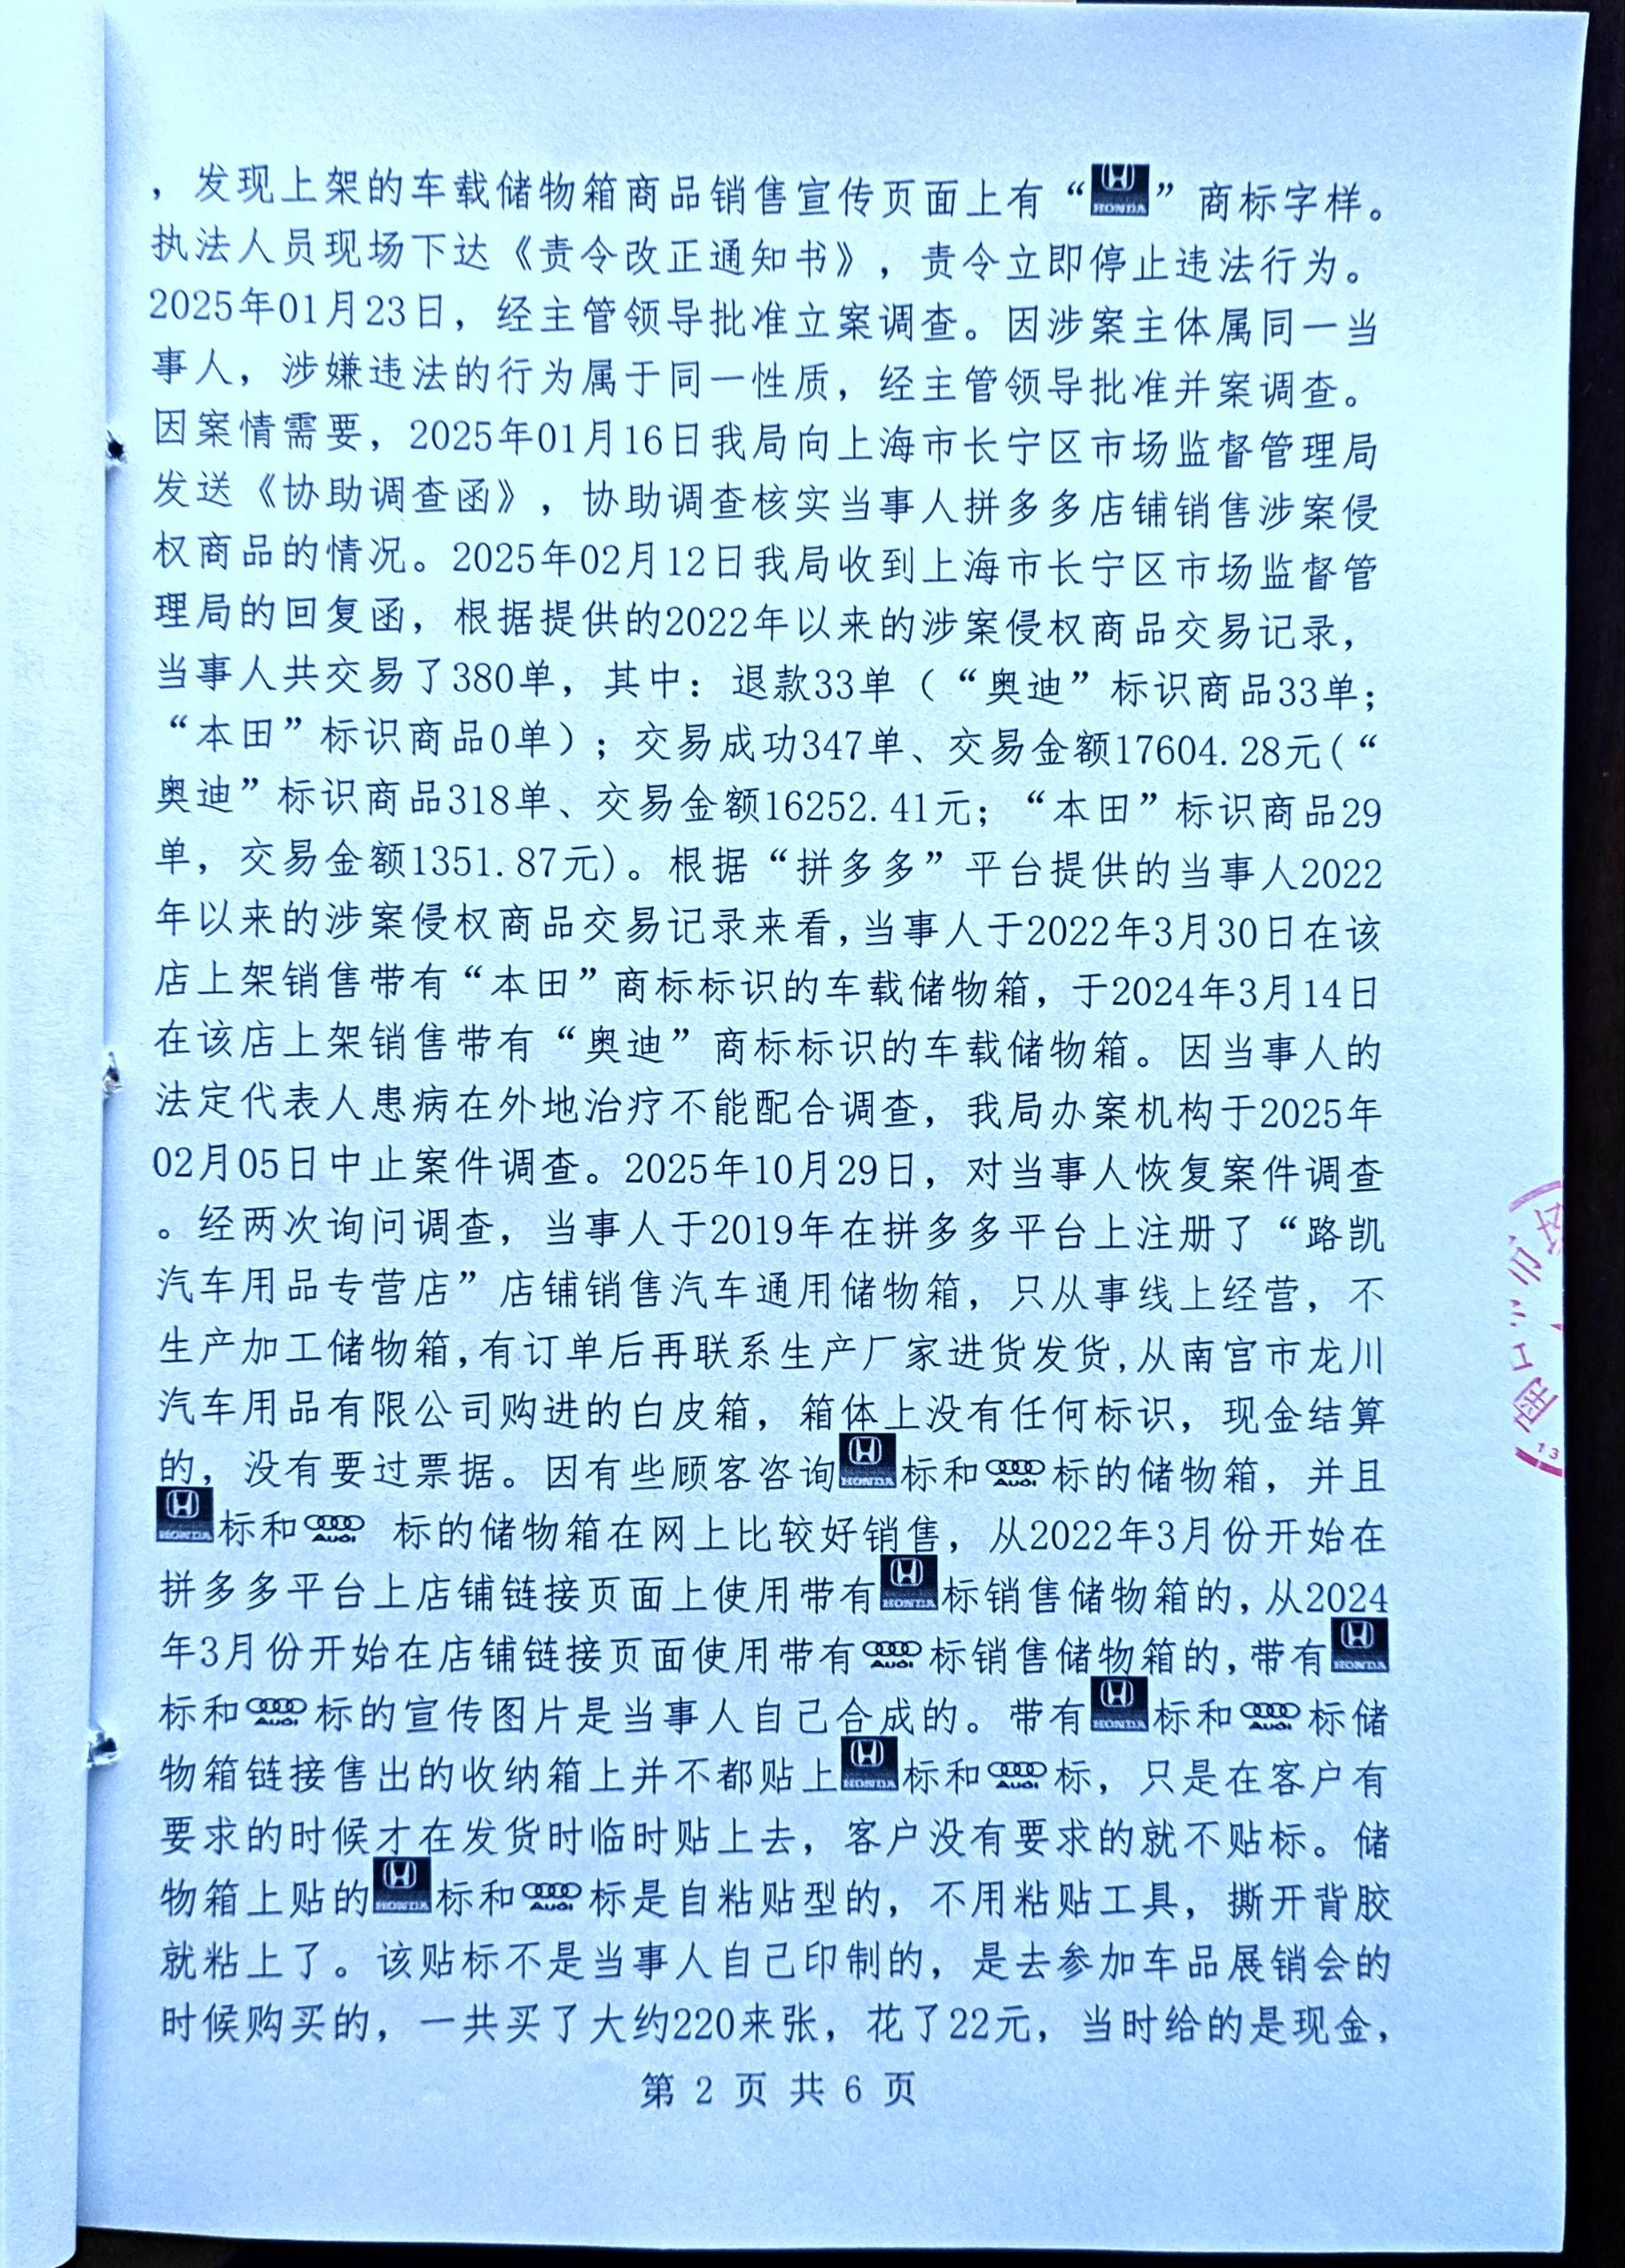 ，发现上架的车载储物箱商品销售宣传页面上有“HONDA”商标字样。
执法人员现场下达《责令改正通知书》，责令立即停止违法行为。
2025年01月23日，经主管领导批准立案调查。因涉案主体属同一当
事人，涉嫌违法的行为属于同一性质，经主管领导批准并案调查。
因案情需要，2025年01月16日我局向上海市长宁区市场监督管理局
发送《协助调查函》，协助调查核实当事人拼多多店铺销售涉案侵
权商品的情况。2025年02月12日我局收到上海市长宁区市场监督管
理局的回复函，根据提供的2022年以来的涉案侵权商品交易记录，
当事人共交易了380单，其中：退款33单（“奥迪”标识商品33单；
“本田”标识商品0单）；交易成功347单、交易金额17604.28元(“
奥迪”标识商品318单、交易金额16252.41元；“本田”标识商品29
单，交易金额1351.87元)。根据“拼多多”平台提供的当事人2022
年以来的涉案侵权商品交易记录来看,当事人于2022年3月30日在该
店上架销售带有“本田”商标标识的车载储物箱，于2024年3月14日
在该店上架销售带有“奥迪”商标标识的车载储物箱。因当事人的
法定代表人患病在外地治疗不能配合调查，我局办案机构于2025年
02月05日中止案件调查。2025年10月29日，对当事人恢复案件调查
。经两次询问调查，当事人于2019年在拼多多平台上注册了“路凯
汽车用品专营店”店铺销售汽车通用储物箱，只从事线上经营，不
生产加工储物箱,有订单后再联系生产厂家进货发货,从南宫市龙川
汽车用品有限公司购进的白皮箱，箱体上没有任何标识，现金结算
的，没有要过票据。因有些顾客咨询HONDA标和AUDI标的储物箱，并且
HONDA标和AUDI 标的储物箱在网上比较好销售，从2022年3月份开始在
拼多多平台上店铺链接页面上使用带有HONDA标销售储物箱的,从2024
年3月份开始在店铺链接页面使用带有AUDI标销售储物箱的,带有HONDA
标和AUDI标的宣传图片是当事人自己合成的。带有HONDA标和AUDI标储
物箱链接售出的收纳箱上并不都贴上HONDA标和AUDI标，只是在客户有
要求的时候才在发货时临时贴上去，客户没有要求的就不贴标。储
物箱上贴的HONDA标和AUDI标是自粘贴型的，不用粘贴工具，撕开背胶
就粘上了。该贴标不是当事人自己印制的，是去参加车品展销会的
时候购买的，一共买了大约220来张，花了22元，当时给的是现金，
第 2 页 共 6 页